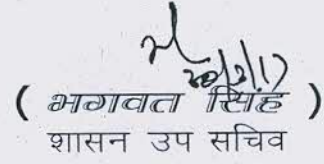 ( भगवत सिंह )
शासन उप सचिव